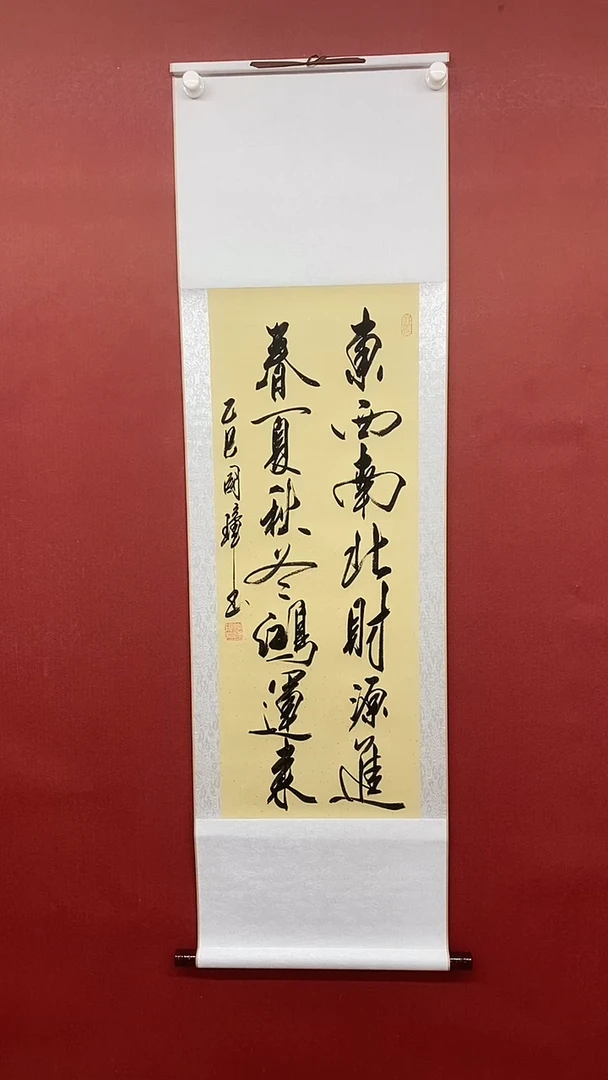 東西南北財源進
春夏秋冬鴻運來
乙巳國璋书